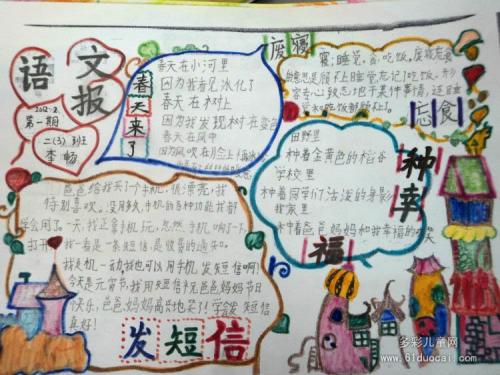 语文报
2012.2
第一期
二(3)班
李畅
春天来了
春天在小河里
因为我看见冰化了
春天在树上
因为我发现树在变色
春天在风中
因为风吹在人脸上
废寝忘食
寝:睡觉。食:吃饭。废寝忘食
种幸福
田野里
种着金黄色的稻谷
学校里
种着同学们活泼的身影
我家里
种着爸爸妈妈和我幸福的欢笑
爸爸给我买了个手机,很漂亮,我
特别喜欢。没用多久,手机的各种功能我都
学会用了。一天,我正拿手机玩,忽然,手机响了一下,
打开
我一看是一条短信,是收费的通知。
我是机一动,我也可以用手机发短信啊!
今天是元宵节,我用短信祝爸爸妈妈节日
快乐,爸爸妈妈高兴地笑了!学发短信
真好!
发短信
多彩儿童网
www.61duocai.com